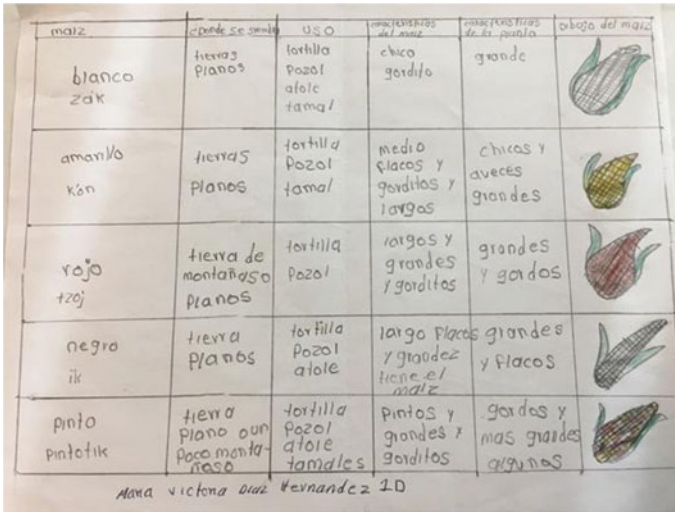 maíz
¿Donde se siembra
uso
características
del maiz
características
de la planta
dibujo del maiz
blanco
zak
tierras
Planos
tortilla
Pozol
atole
tamal
chico
gordito
grande
amarillo
kón
tierras
Planos
tortilla
Pozol
tamal
medio
flacos y
gorditos y
largos
chicos y
aveces
grandes
rojo
tzoj
tierra de
montañaso
Planos
tortilla
Pozol
largos y
grandes
y gorditos
grandes
y gordos
negro
ik
tierra
Planos
tortilla
Pozol
atole
largo flacos
y grandez
tiene el
maiz
grandes
y flacos
pinto
Pintotik
tierra
Plano o un
Poco monta-
ñoso
tortilla
Pozol
atole
tamales
Pintos y
grandes y
gorditos
gordos y
mas grandes
algunos
Maria Victoria Diaz Hernandez 1D